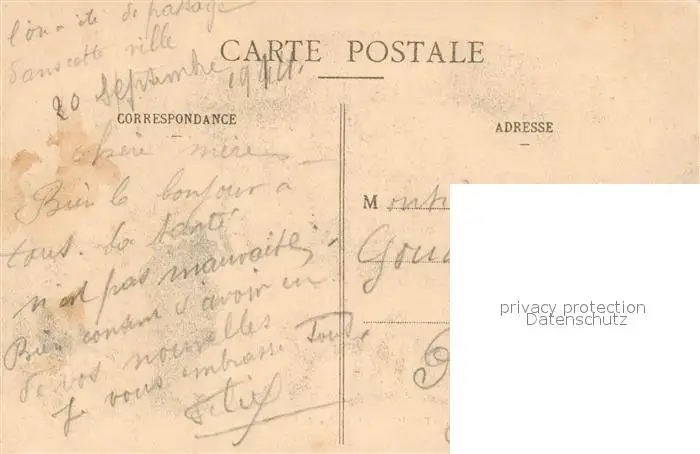 l'on a été de passage
dans cette ville
20 septembre 1914.
CARTE POSTALE
CORRESPONDANCE
ADRESSE
chère mère
Bien le bonjour a
tous. La santé
n'est pas mauvaise,
Bien content d'avoir eu
de vos nouvelles
Je vous embrasse Tous.
Félix
M
privacy protection
Datenschutz